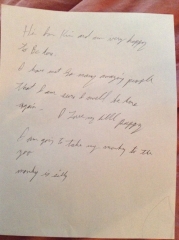 I am very happy
to be here.
I have met so many amazing people
that I am sure I will be here
again. I love my little puppy
I am going to take my monkey to the
zoo
monkey is silly